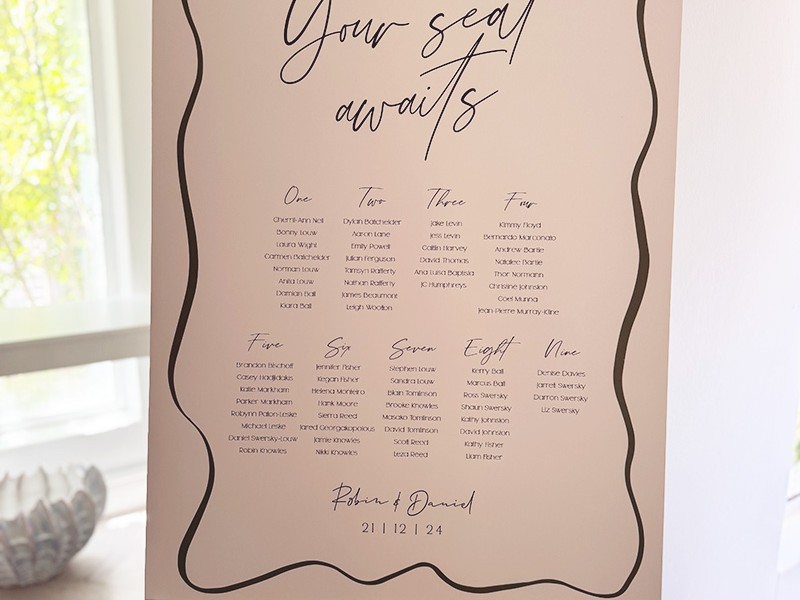 Your seat
awaits
One
Cherril-Ann Nell
Bonny Louw
Laura Wight
Carmen Batchelder
Norman Louw
Anita Louw
Damian Ball
Kiara Ball
Two
Dylan Batchelder
Aaron Lane
Emily Powell
Julian Ferguson
Tamsyn Rafferty
Nathan Rafferty
James Beaumont
Leigh Wootton
Three
Jake Levin
Jess Levin
Caitlin Harvey
David Thomas
Ana Luisa Baptista
JC Humphreys
Four
Kimmy Floyd
Bernardo Marconato
Andrew Bartle
Natalee Bartle
Thor Normann
Christine Johnston
Coel Munna
Jean-Pierre Murray-Kline
Five
Brandon Bischoff
Casey Hadjidakis
Katie Markham
Parker Markham
Robynn Paton-Leske
Michael Leske
Daniel Swersky-Louw
Robin Knowles
Six
Jennifer Fisher
Kegan Fisher
Helena Monteiro
Hank Moore
Sierra Reed
Jared Georgakopolous
Jamie Knowles
Nikki Knowles
Seven
Stephen Louw
Sandra Louw
Blain Tomlinson
Brooke Knowles
Masako Tomlinson
David Tomlinson
Scott Reed
Leza Reed
Eight
Kerry Ball
Marcus Ball
Ross Swersky
Shaun Swersky
Kathy Johnston
David Johnston
Kathy Fisher
Liam Fisher
Nine
Denise Davies
Jarrett Swersky
Darron Swersky
Liz Swersky
Robin & Daniel
21 | 12 | 24